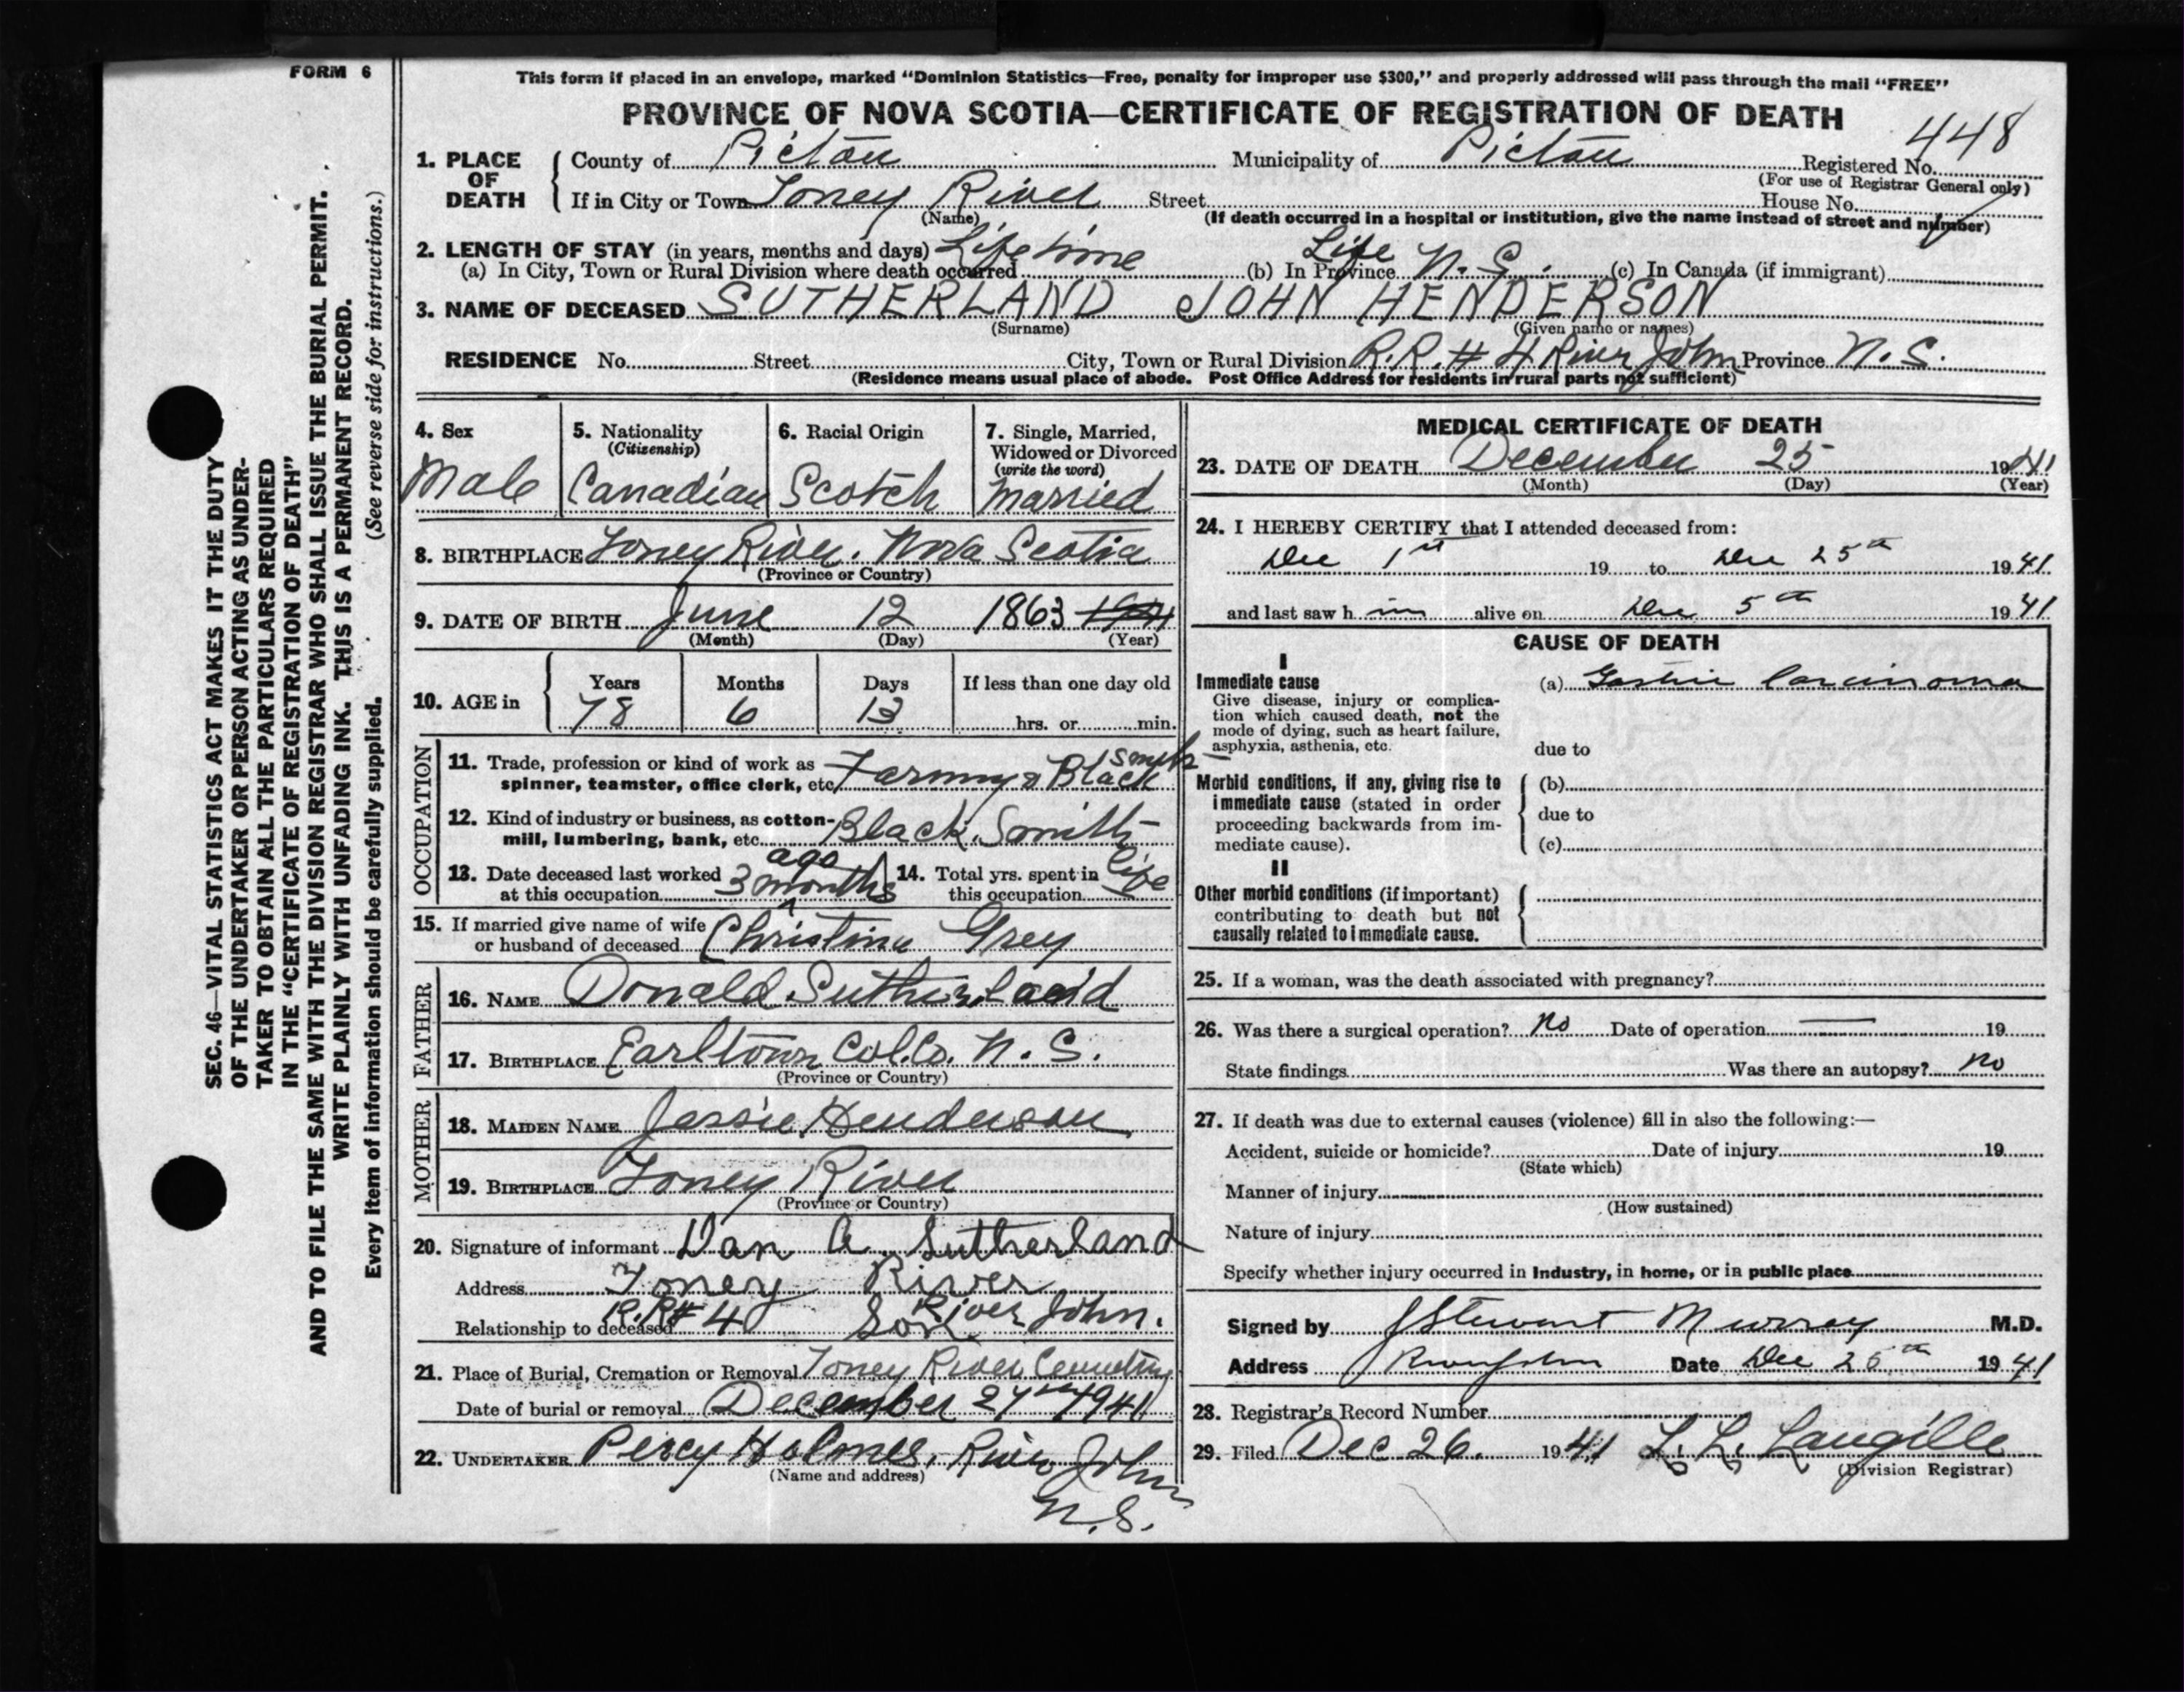 FORM 6
This form if placed in an envelope, marked "Dominion Statistics—Free, penalty for improper use $300," and properly addressed will pass through the mail "FREE"
PROVINCE OF NOVA SCOTIA—CERTIFICATE OF REGISTRATION OF DEATH
1. PLACE OF DEATH County of Pictou Municipality of Pictou Registered No. 448
(For use of Registrar General only)
If in City or Town Toney River Street House No.
(Name) (If death occurred in a hospital or institution, give the name instead of street and number)
2. LENGTH OF STAY (in years, months and days) Lifetime Life
(a) In City, Town or Rural Division where death occurred (b) In Province N.S. (c) In Canada (if immigrant)
3. NAME OF DECEASED SUTHERLAND JOHN HENDERSON
(Surname) (Given name or names)
RESIDENCE No. Street City, Town or Rural Division R.R. # 4 River John Province N.S.
(Residence means usual place of abode. Post Office Address for residents in rural parts not sufficient)
4. Sex
Male
5. Nationality
(Citizenship)
Canadian
6. Racial Origin
Scotch
7. Single, Married,
Widowed or Divorced
(write the word)
Married
8. BIRTHPLACE Toney River. Nova Scotia
(Province or Country)
9. DATE OF BIRTH June 12 1863
(Month) (Day) (Year)
10. AGE in Years Months Days If less than one day old
78 6 13 hrs. or min.
OCCUPATION
11. Trade, profession or kind of work as
spinner, teamster, office clerk, etc. Farming & Black smith
12. Kind of industry or business, as cotton-
mill, lumbering, bank, etc. Black Smith
13. Date deceased last worked
at this occupation 3 months ago
14. Total yrs. spent in
this occupation life
15. If married give name of wife
or husband of deceased Christina Grey
FATHER
16. NAME Donald Sutherland
17. BIRTHPLACE Earltown Col. Co. N.S.
(Province or Country)
MOTHER
18. MAIDEN NAME Jessie Henderson
19. BIRTHPLACE Toney River
(Province or Country)
20. Signature of informant Dan A. Sutherland
Address Toney River
R.R# 4 River John.
Relationship to deceased Son
21. Place of Burial, Cremation or Removal Toney River Cemetery
Date of burial or removal December 27 1941
22. UNDERTAKER Percy Holmes, River John
(Name and address)
N.S.
MEDICAL CERTIFICATE OF DEATH
23. DATE OF DEATH December 25 1941
(Month) (Day) (Year)
24. I HEREBY CERTIFY that I attended deceased from:
Dec 1st 19 to Dec 25th 1941
and last saw h im alive on Dec 5th 1941
CAUSE OF DEATH
I
Immediate cause
Give disease, injury or complica-
tion which caused death, not the
mode of dying, such as heart failure,
asphyxia, asthenia, etc.
(a) Gastric Carcinoma
due to
Morbid conditions, if any, giving rise to
immediate cause (stated in order
proceeding backwards from im-
mediate cause).
(b)
due to
(c)
II
Other morbid conditions (if important)
contributing to death but not
causally related to immediate cause.
25. If a woman, was the death associated with pregnancy?
26. Was there a surgical operation? No Date of operation — 19
State findings Was there an autopsy? No
27. If death was due to external causes (violence) fill in also the following:—
Accident, suicide or homicide? Date of injury 19
(State which)
Manner of injury
(How sustained)
Nature of injury
Specify whether injury occurred in Industry, in home, or in public place
Signed by J Stewart Murray M.D.
Address River John Date Dec 25th 1941
28. Registrar's Record Number
29. Filed Dec 26. 1941 L. L. Langille
(Division Registrar)
SEC. 46—VITAL STATISTICS ACT MAKES IT THE DUTY
OF THE UNDERTAKER OR PERSON ACTING AS UNDER-
TAKER TO OBTAIN ALL THE PARTICULARS REQUIRED
IN THE "CERTIFICATE OF REGISTRATION OF DEATH"
AND TO FILE THE SAME WITH THE DIVISION REGISTRAR WHO SHALL ISSUE THE BURIAL PERMIT.
WRITE PLAINLY WITH UNFADING INK. THIS IS A PERMANENT RECORD.
Every item of information should be carefully supplied. (See reverse side for instructions.)